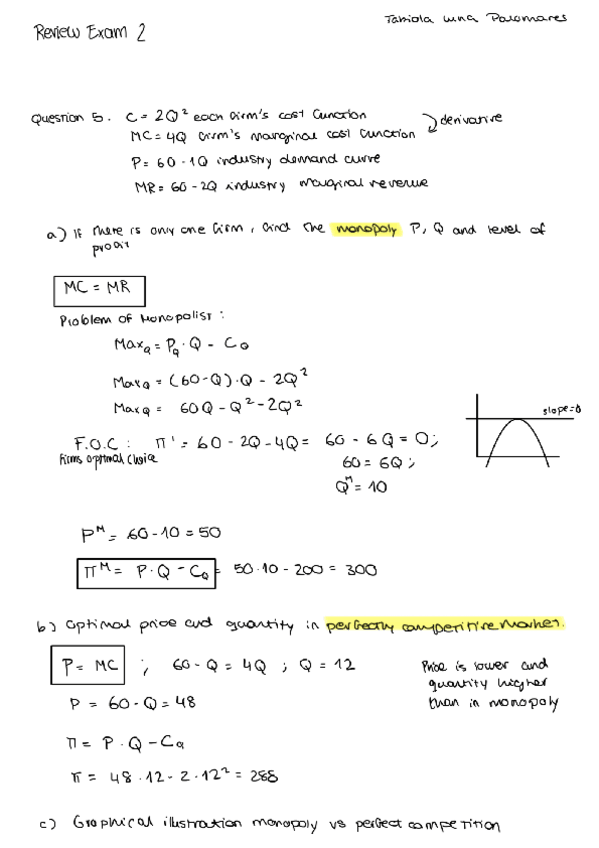 Review Exam 2
Fabiola Luna Palomares
Question 5. C = 2Q² each firm's cost function
MC = 4Q firm's marginal cost function
derivative
P = 60 - 1Q industry demand curve
MR = 60 - 2Q industry marginal revenue
a) If there is only one firm, find the monopoly P, Q and level of
profit
MC = MR
Problem of Monopolist:
Max_Q = P_Q · Q - C_Q
Max_Q = (60-Q)·Q - 2Q²
Max_Q = 60Q - Q² - 2Q²
F.O.C: π' = 60 - 2Q - 4Q = 60 - 6Q = 0;
Firms optimal choice
60 = 6Q;
Q^M = 10
slope=0
P^M = 60 - 10 = 50
π^M = P·Q - C_Q = 50·10 - 200 = 300
b) Optimal price and quantity in perfectly competitive market.
P = MC ; 60 - Q = 4Q ; Q = 12
Price is lower and
quantity higher
than in monopoly
P = 60 - Q = 48
π = P·Q - C_Q
π = 48·12 - 2·12² = 288
c) Graphical illustration monopoly vs perfect competition